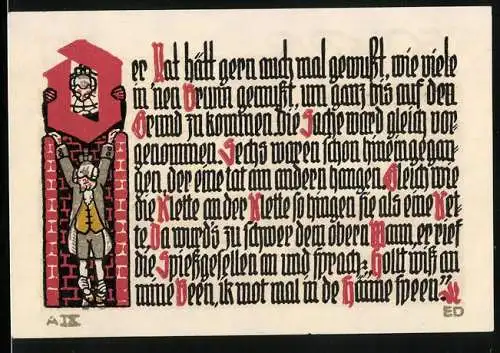 Der Rat hätt gern auch mal gewußt, wie viele
in'nen Brunn gemußt, um ganz bis auf den
Grund zu kommen. Die Sache ward gleich vor-
genommen. Sechs waren schon hineingegan-
gen, der eine tat am andern hangen. Gleich wie
die Klette an der Klette so hingen sie als eine Ket-
te. Da wurd's zu schwer dem obern Mann, er rief
die Spießgesellen an und sprach: „Hollt wiß an
mine Been, ik mot mal in de Hänne speen."
A IX
ED